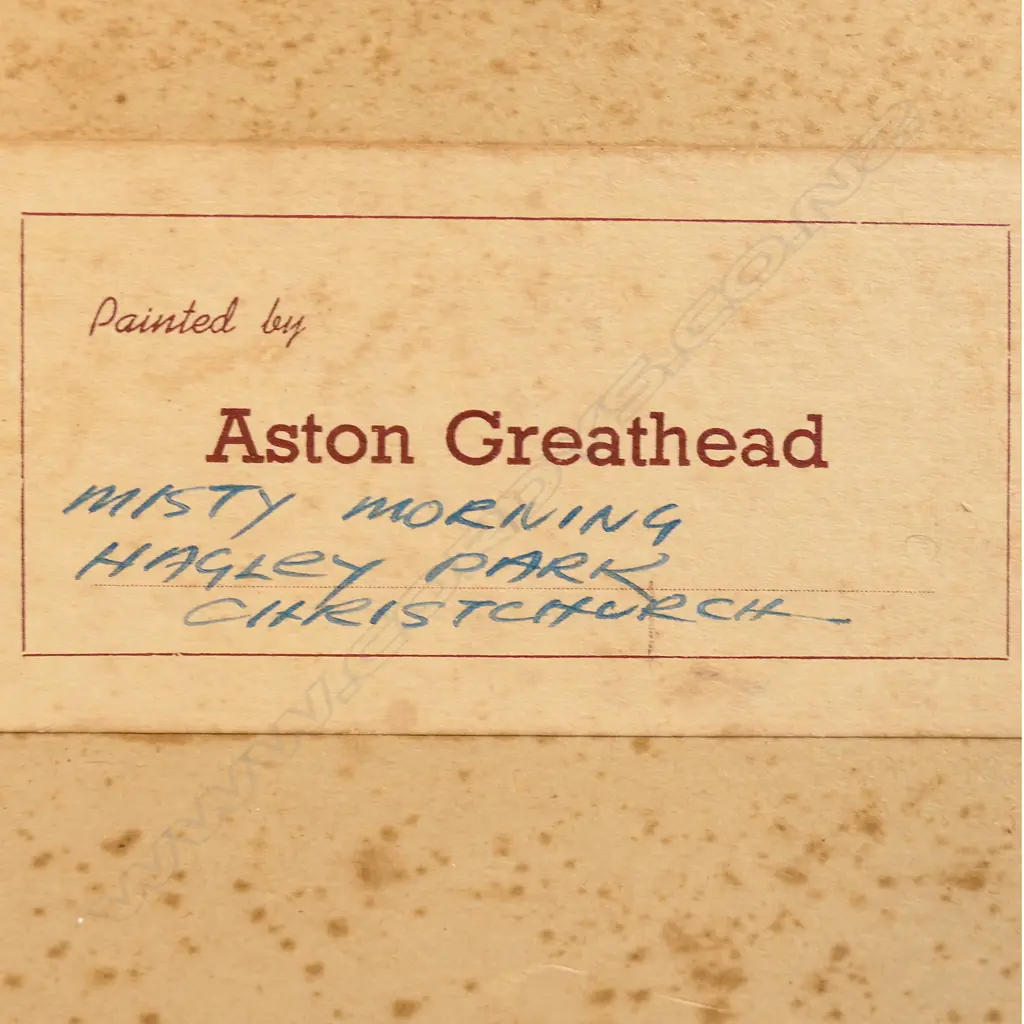 Painted by
Aston Greathead
MISTY MORNING
HAGLEY PARK
CHRISTCHURCH